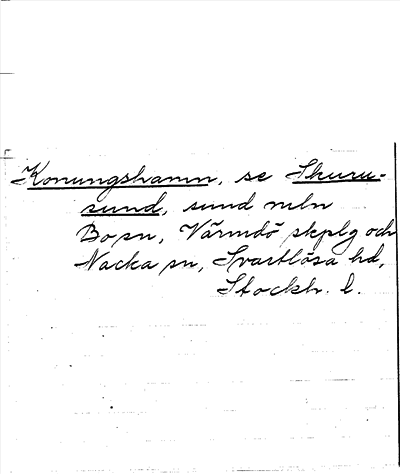 Konungshamn, se Skuru-
sund, sund mln
Bo sn, Värmdö skplg och
Nacka sn, Svartlösa hd,
Stockh. l.